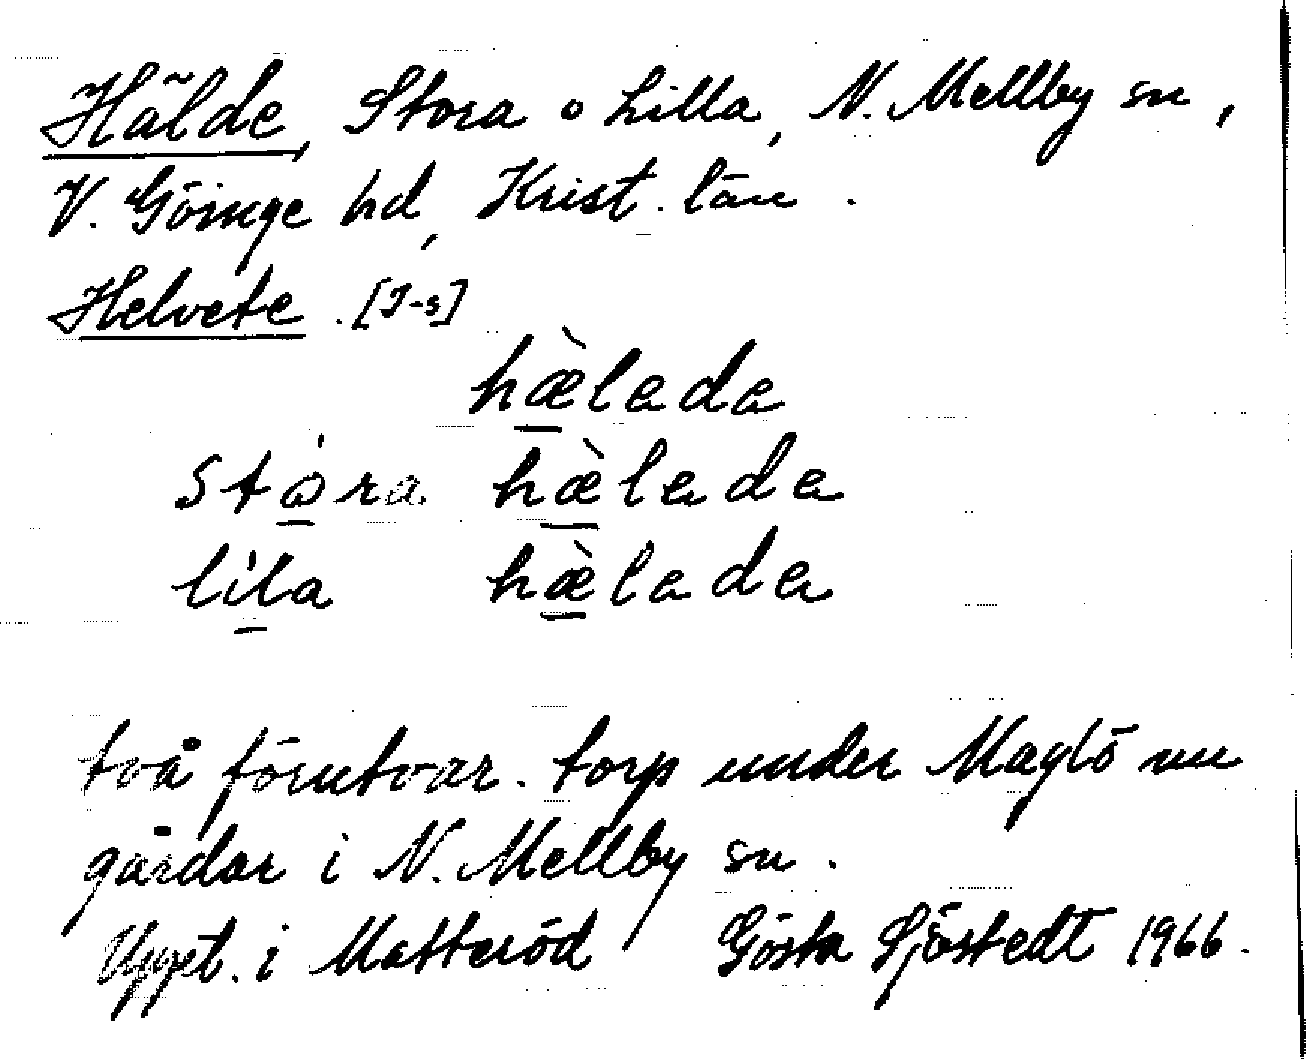 Hälde, Stora o Lilla, N. Mellby sn,
V. Göinge hd, Krist. län.
Helvete. [J-s]
hæ̀lada
stóra hæ̀lada
líla hæ̀lada
två förutvar. torp under Maglö nu
gårdar i N. Mellby sn.
Uppget. i Matteröd Gösta Sjöstedt 1966.